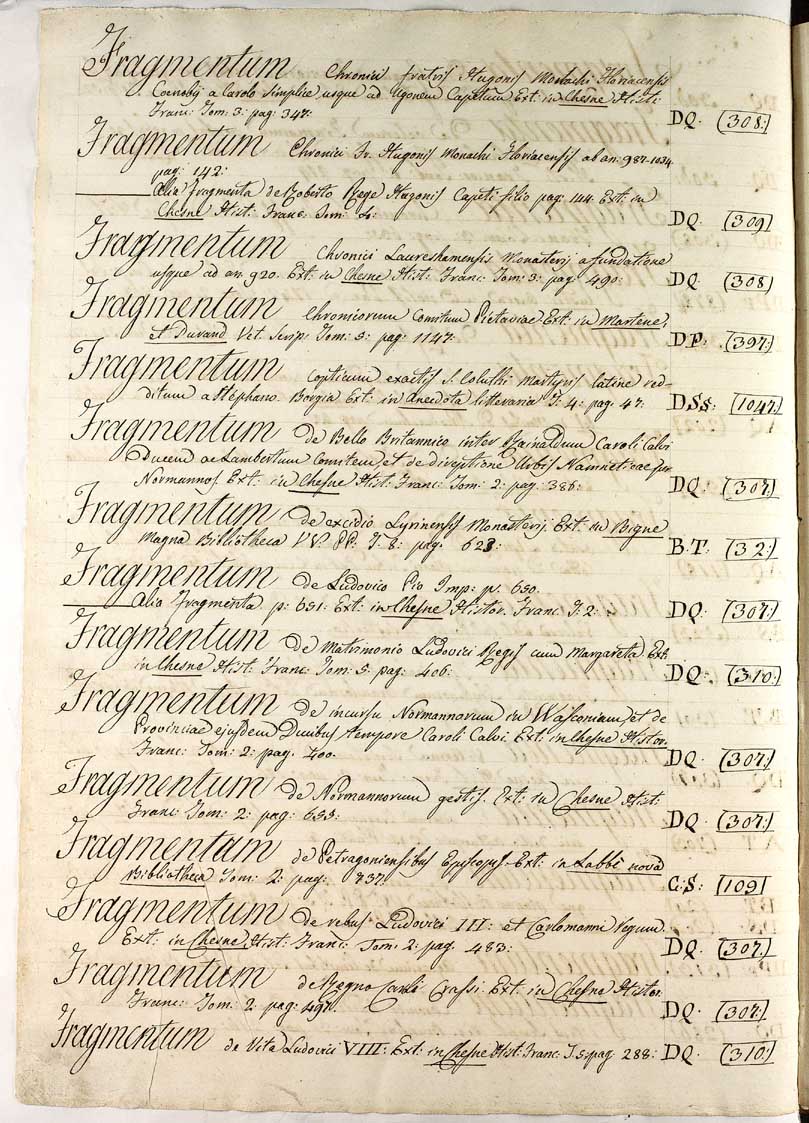 Fragmentum Chronici fratris Hugonis Monachi Floriacensis
Coenobij a Carolo Simplice usque ad Ugonem Capetum Ext: in Chesne Hist:
Franc: Tom: 3: pag: 347: DQ. (308:)
Fragmentum Chronici Fr. Hugonis Monachi Floriacensis ab an: 987-1034
pag: 142:
Alia fragmenta de Roberto Rege Hugonis Capeti filio pag: 144. Ext: in
Chesne Hist: Franc: Tom: 4: DQ. (309)
Fragmentum Chronici Laureshamensis Monasterij a fundatione
usque ad an: 920. Ext: in Chesne Hist: Franc: Tom: 3: pag: 490: DQ. (308)
Fragmentum Chronicorum Comitum Pictaviae Ext: in Martene,
et Durand Vet. Scrip: Tom: 5: pag: 1147: DP: (397:)
Fragmentum Copticum exactis S. Coluthi Martyris latine red-
ditum a Stephano Borgia Ext: in Anecdota litteraria T: 4: pag: 47: DSs: (1047.)
Fragmentum de Bello Britannico inter Rainaldum Caroli Calvi
Ducem ac Lambertum Comitem, et de direptione Urbis Namneticae per
Normannos Ext: in Chesne Hist: Franc: Tom: 2: pag: 386: DQ: (307.)
Fragmentum de excidio Lyrinensis Monasterij Ext: in Bigne
Magna Bibliotheca VV. PP. T: 8: pag: 623: B.T. (32:)
Fragmentum de Ludovico Pio Imp: p: 650.
Alia Fragmenta p: 651: Ext: in Chesne Histor: Franc: T: 2: DQ. (307:)
Fragmentum de Matrimonio Ludovici Regis cum Margareta Ext:
in Chesne Hist: Franc: Tom: 5: pag: 406: DQ. (310:)
Fragmentum de incursu Normannorum in Wasconiam, et de
Provinciae ejusdem Ducibus tempore Caroli Calvi Ext: in Chesne Histor.
Franc: Tom: 2: pag: 400. DQ. (307:)
Fragmentum de Normannorum gestis. Ext: in Chesne Hist:
Franc: Tom: 2: pag: 655: DQ. (307:)
Fragmentam de Petragoniensibus Episcopis Ext: in Labbe nova
Bibliotheca Tom: 2: pag: 737: C.S: (109)
Fragmentum de rebus Ludovici III: et Carlomanni Regum
Ext: in Chesne, Hist: Franc: Tom: 2: pag: 483: DQ. (307.)
Fragmentum de Regno Caroli Crassi Ext: in Chesne Histor.
Franc: Tom: 2: pag: DQ. (307:)
Fragmentum de Vita Ludovici VIII: Ext: in Chesne Hist: Franc: T.5: pag: 288: DQ. (310:)